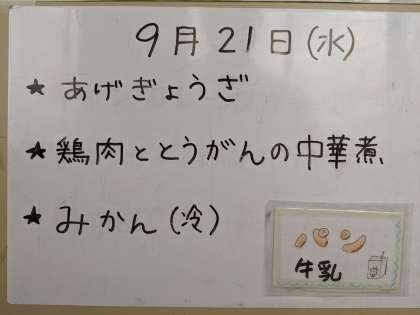 9月21日(水)
★ あげぎょうざ
★ 鶏肉ととうがんの中華煮
★ みかん(冷)
パン
牛乳